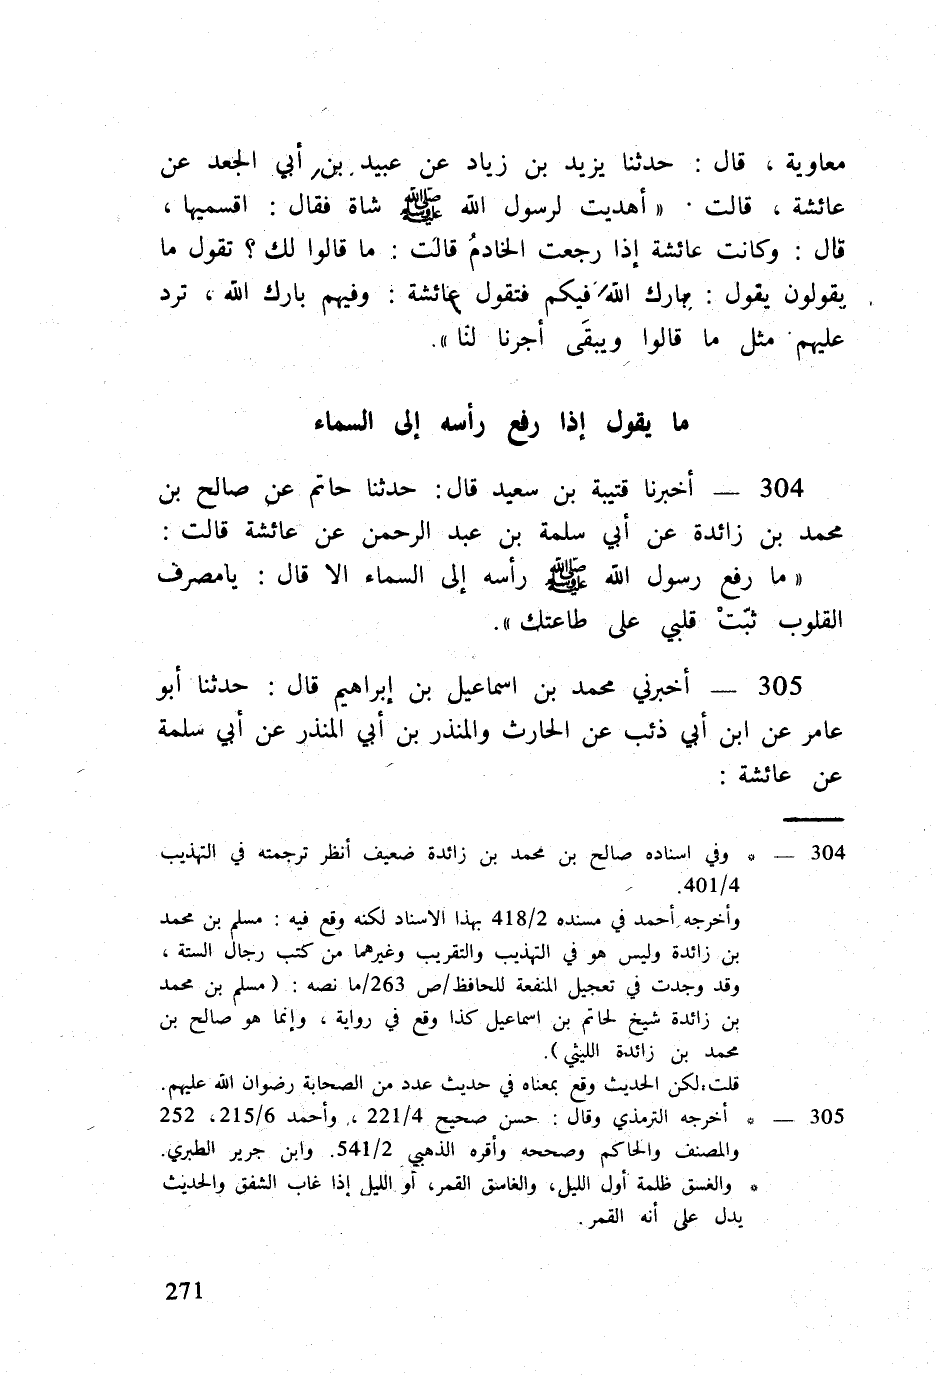 معاوية ، قال : حدثنا يزيد بن زياد عن عبيد بن أبي الجعد عن
عائشة ، قالت : « أهديت لرسول الله ﷺ شاة فقال : اقسميها ،
قال : وكانت عائشة إذا رجعت الخادمُ قالَت : ما قالوا لك ؟ تقول ما
يقولون يقول : بارك الله فيكم فتقول عائشة : وفيهم بارك الله ، ترد
عليهم مثل ما قالوا ويبقَى أجرنا لنَا ».
ما يقول إذا رفع رأسه إلى السماء
304 — أخبرنا قتيبة بن سعيد قال: حدثنا حاتم عن صالح بن
محمد بن زائدة عن أبي سلمة بن عبد الرحمن عن عائشة قالت :
« ما رفع رسول الله ﷺ رأسه إلى السماء الا قال : يامصرف
القلوب ثبّتْ قلبي على طاعتك ».
305 — أخبرني محمد بن اسماعيل بن إبراهيم قال : حدثنا أبو
عامر عن ابن أبي ذئب عن الحارث والمنذر بن أبي المنذر عن أبي سلمة
عن عائشة :
304 — * وفي اسناده صالح بن محمد بن زائدة ضعيف أنظر ترجمته في التهذيب
401/4.
وأخرجه أحمد في مسنده 418/2 بهذا الاسناد لكنه وقع فيه : مسلم بن محمد
بن زائدة وليس هو في التهذيب والتقريب وغيرهما من كتب رجال الستة ،
وقد وجدت في تعجيل المنفعة للحافظ/ص 263/ما نصه : ( مسلم بن محمد
بن زائدة شيخ لحاتم بن اسماعيل كذا وقع في رواية ، وإنما هو صالح بن
محمد بن زائدة الليثي ).
قلت،لكن الحديث وقع بمعناه في حديث عدد من الصحابة رضوان الله عليهم.
305 — * أخرجه الترمذي وقال : حسن صحيح 221/4 ، وأحمد 215/6، 252
والمصنف والحاكم وصححه وأقره الذهبي 541/2. وابن جرير الطبري.
* والغسق ظلمة أول الليل، والغاسق القمر، أو الليل إذا غاب الشفق والحديث
يدل على أنه القمر.
271